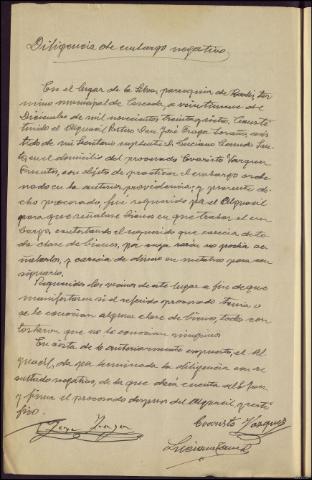 Diligencia de embargo negativo.
En el lugar de la Silva, parroquia de Rodis, tér-
mino municipal de Cerceda, a veintinueve de
Diciembre de mil novecientos treinta y siete, Consti-
tuido el Alguacil Don José asis-
tido de mi Secretario suplente D. Luciano
en el domicilio del procesado Evaristo Vázquez
con objeto de practicar el embargo orde-
nado en la anterior providencia, y presente di-
cho procesado, fué requerido por el Alguacil
para que señalase bienes en que trabar el em-
bargo, contestando el requerido que carecía de to-
da clase de bienes, por cuya razón no podía se-
ñalarlos, y carecía de dinero en metálico para con-
signarlo.
Requeridos los vecinos de este lugar a fin de que
manifestasen si el referido procesado tenía o
se le conocían alguna clase de bienes, todos con-
testaron que no le conocían ningunos.
En vista de lo anteriormente expuesto, el Al-
guacil, da por terminada la diligencia con re-
sultado negativo, de la que dará cuenta al Juez
y firma el procesado después del Alguacil y certi-
fico.
Evaristo Vázquez
Luciano